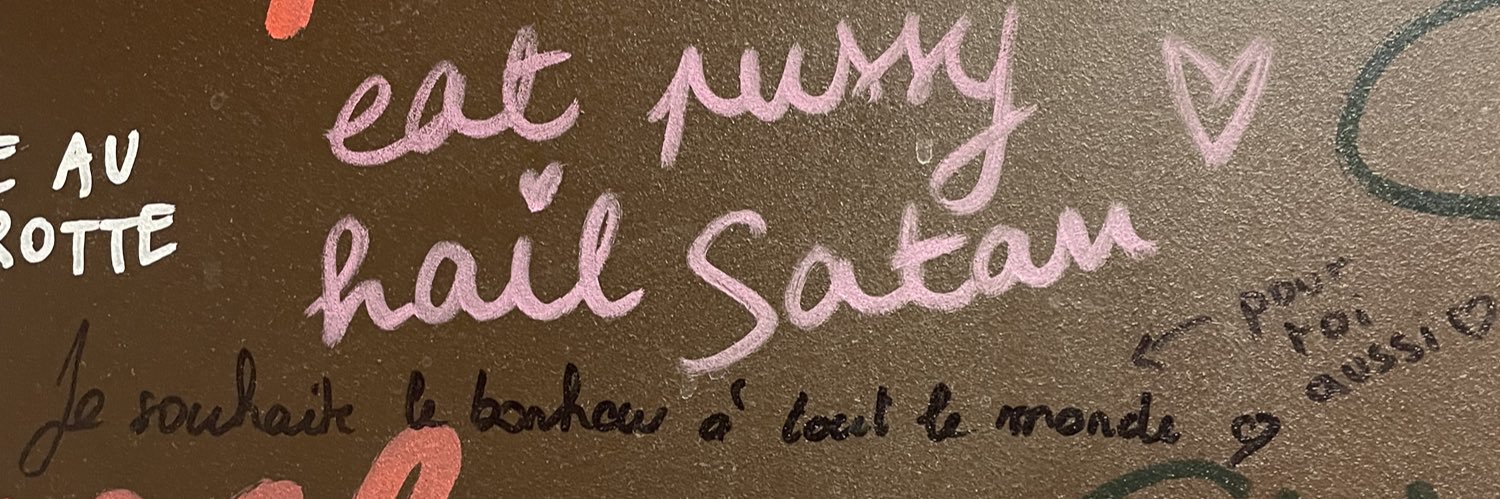 eat pussy ♡
hail Satan
AU
ROTTE
Je souhaite le bonheur à tout le monde ♡
pour
toi
aussi ♡